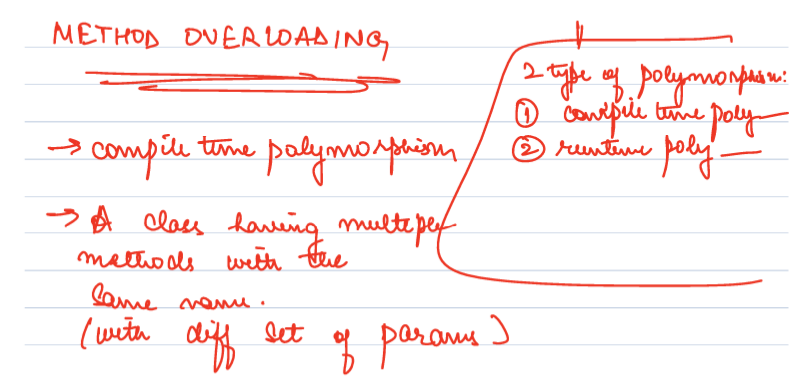 METHOD OVERLOADING
→ compile time polymorphism
→ A class having multiple
methods with the
same name.
(with diff set of params)
2 type of polymorphism:
① compile time poly—
② runtime poly—